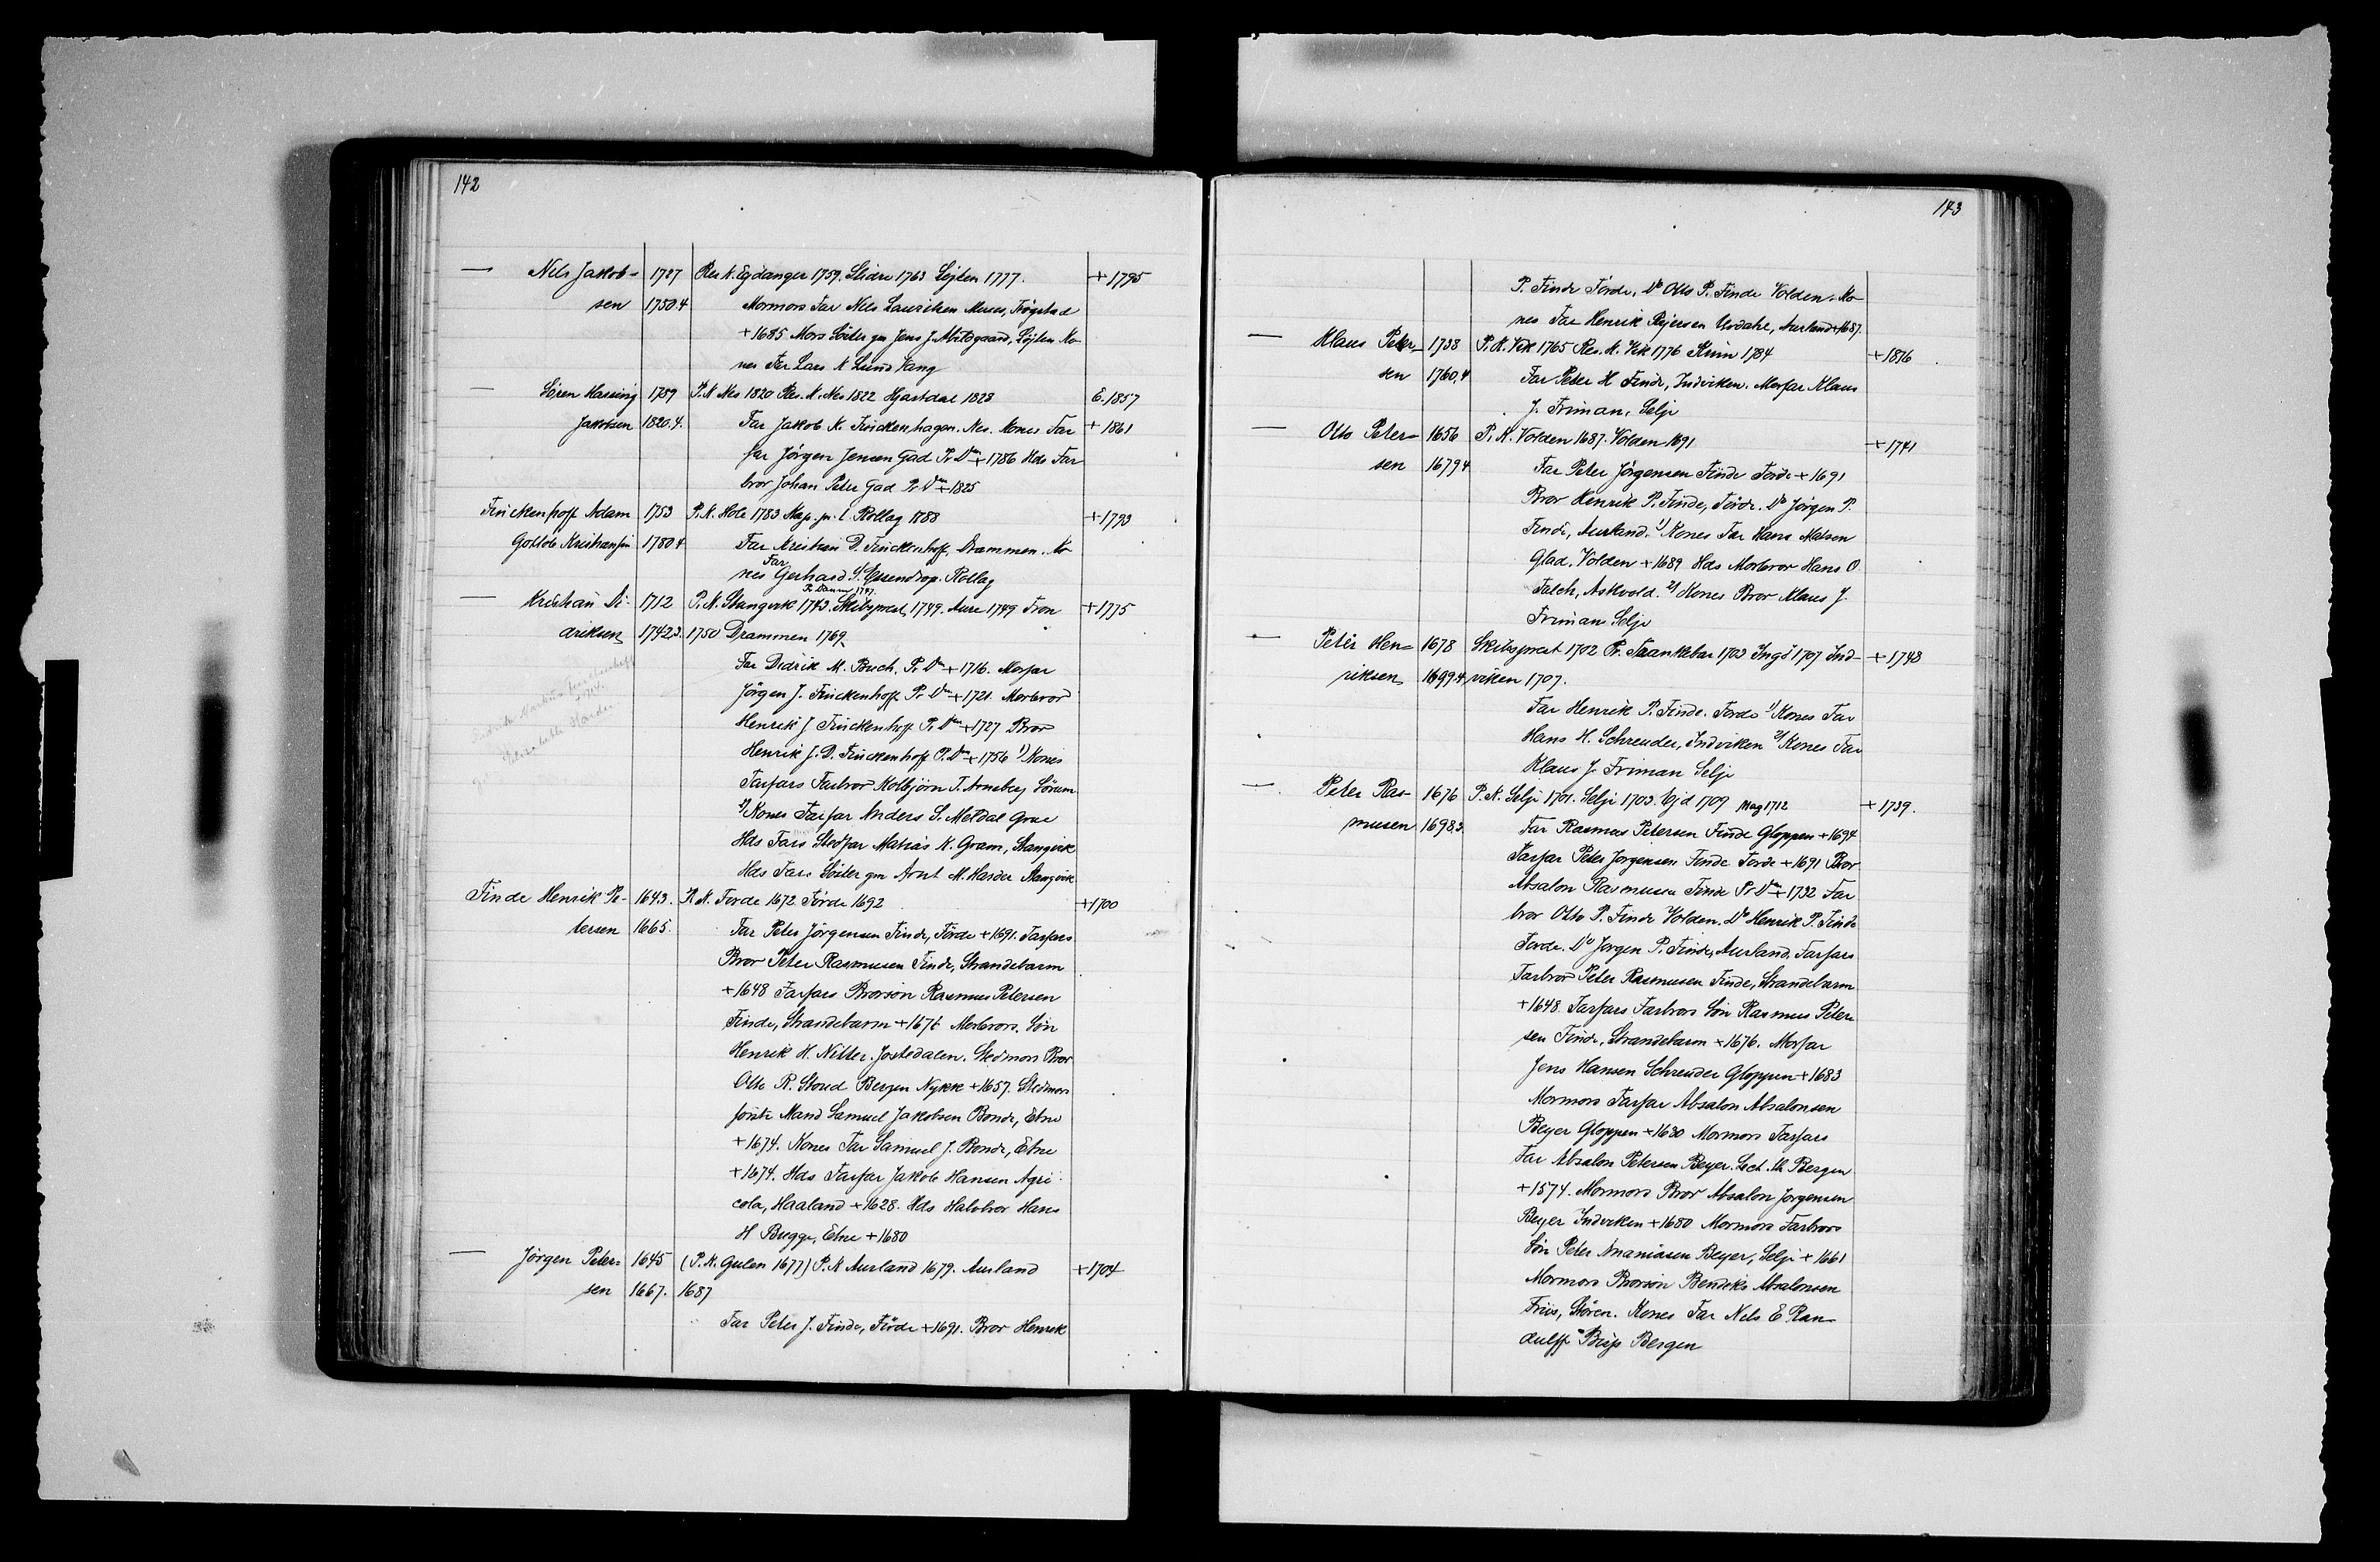 142
— Nils Jakob- 1727 Res. K. Egdanger 1759. Slidre 1763 Löjten 1777. + 1795
sen 1750.4 Mormors Far Nils Lauritsen Trögstad
+ 1685 Mors Söster gm Jens J. Löjten Ko-
nes Far Lars K Lund Vang
— Sören Hassing 1789 P. K Nes 1820 Res. K. Nes 1822 Hjartdal 1828 E. 1857
Jakobsen 1820.4. Far Jakob K. Finckenhagen. Nes. Kones Far + 1861
far Jörgen Jensen Gad Pr Dm + 1786 Hds Far
bror Johan Peter Gad Pr Dm + 1825
Finckenhoff Adam 1753 P. K. Hole 1783 Kap. p. l. Rollag 1788 + 1793
Gottlob Kristiansen 1780.4 Far Kristian D. Finckenhoff, Drammen. Ko-
Far
nes Gerhard S. Essendrop. Rollag
— Kristian Di- 1712 P. K. Stangvik 1743. Skibsprest, 1749. Aure 1749 Tron + 1775
driksen 1742.3. 1750 Drammen 1769
Far Didrik M. Buch. Pr Dm + 1716. Morfar
Jörgen J. Finckenhoff Pr Dm + 1721. Morbror
Henrik J Finckenhoff Pr. Dm + 1727 Bror
Henrik J. D. Finckenhoff Pr. Dm + 1756 1) Kones
Farfars Farbror Kolbjörn T. Arneberg Sörum
2) Kones Farfar Anders S. Meldal Grue
Hds Fars Stedfar Matias K. Gram, Stangvik
Hds Fars Söster gm Arnt M. Harder Stangvik
Finde Henrik Pe- 1643. P. K. Förde 1672 Förde 1692 + 1700
tersen 1665. Far Peter Jörgensen Finde, Förde + 1691. Farfars
Bror Peter Rasmusen Finde, Strandebarm
+ 1648 Farfars Brorsön Rasmus Petersen
Finde, Strandebarm + 1676 Morbrors Sön
Henrik H. Nitter. Jostedalen. Stedmors Bror
Otto R. Stoud Bergen Nykk + 1657. Stedmors
förste Mand Samuel Jakobsen Bonde, Etne
+ 1674. Kones Far Samuel J. Bonde, Etne
+ 1674. Hds Farfar Jakob Hansen Agri-
cola, Haaland + 1628. Hds Halvbror Hans
H Bugge, Etne + 1680
— Jörgen Peter- 1645 (P. K. Gulen 1677) P. K Aurland 1679. Aurland + 1704
sen 1667. 1687
Far Peter J. Finde, Förde + 1691. Bror Henrik
143
P. Finde Förde, Do Otto P. Finde Volden. Ko-
nes Far Henrik Urdahl, Aurland + 1687.
— Klaus Peter- 1738 P. K. Vik 1765 Res. K. Vik 1776 Kvin 1784 + 1816
sen 1760.4 Far Peter H Finde, Indviken. Morfar Klaus
J. Friman, Selje
— Otto Peter- 1656 P. K. Volden 1687. Volden 1691 + 1741
sen 1679 4 Far Peter Jörgensen Finde Förde + 1691
Bror Henrik P. Finde, Förde. Do Jörgen P.
Finde, Aurland. 1) Kones Far Hans Matsen
Glad, Volden + 1689 Hds Morbror Hans O.
Falch, Askvold. 2) Kones Bror Klaus J.
Friman Selje
— Peter Hen- 1678 Skibsprest 1702 Pr. Trankebar 1703 Ingö 1707 Ind- + 1748
riksen 1699.4 viken 1707.
Far Henrik P. Finde. Förde 1) Kones Far
Hans H. Schreuder, Indviken 2) Kones Far
Klaus J. Friman Selje
— Peter Ras- 1676 P. K. Selje 1701. Selje 1703. Ejd 1709 Mag 1712 + 1739.
musen 1698.3. Far Rasmus Petersen Finde Gloppen + 1694
Farfar Peter Jorgensen Finde Förde + 1691 Bror
Absalon Rasmusen Finde Pr Dm + 1732 Far
bror Otto P. Finde Volden. Do Henrik P. Finde
Förde. Do Jorgen P. Finde, Aurland. Farfars
Farbror Peter Rasmusen Finde, Strandebarm
+ 1648. Farfars Farbrors Sön Rasmus Peter-
sen Finde, Strandebarm + 1676. Morfar
Jens Hansen Schreuder Gloppen + 1683
Mormors Farfar Absalon Absalonsen
Beyer Gloppen + 1630 Mormors Farfars
Far Absalon Petersen Beyer. Lect. th Bergen
+ 1574. Mormors Bror Absalon Jorgensen
Beyer Indviken + 1680 Mormors Farbrors
Sön Peter Ananiasen Beyer, Selje + 1661
Mormors Brorsön Bendiks Absalonsen
Friis, Stören. Kones Far Nils E Ran-
dulff Bisp Bergen